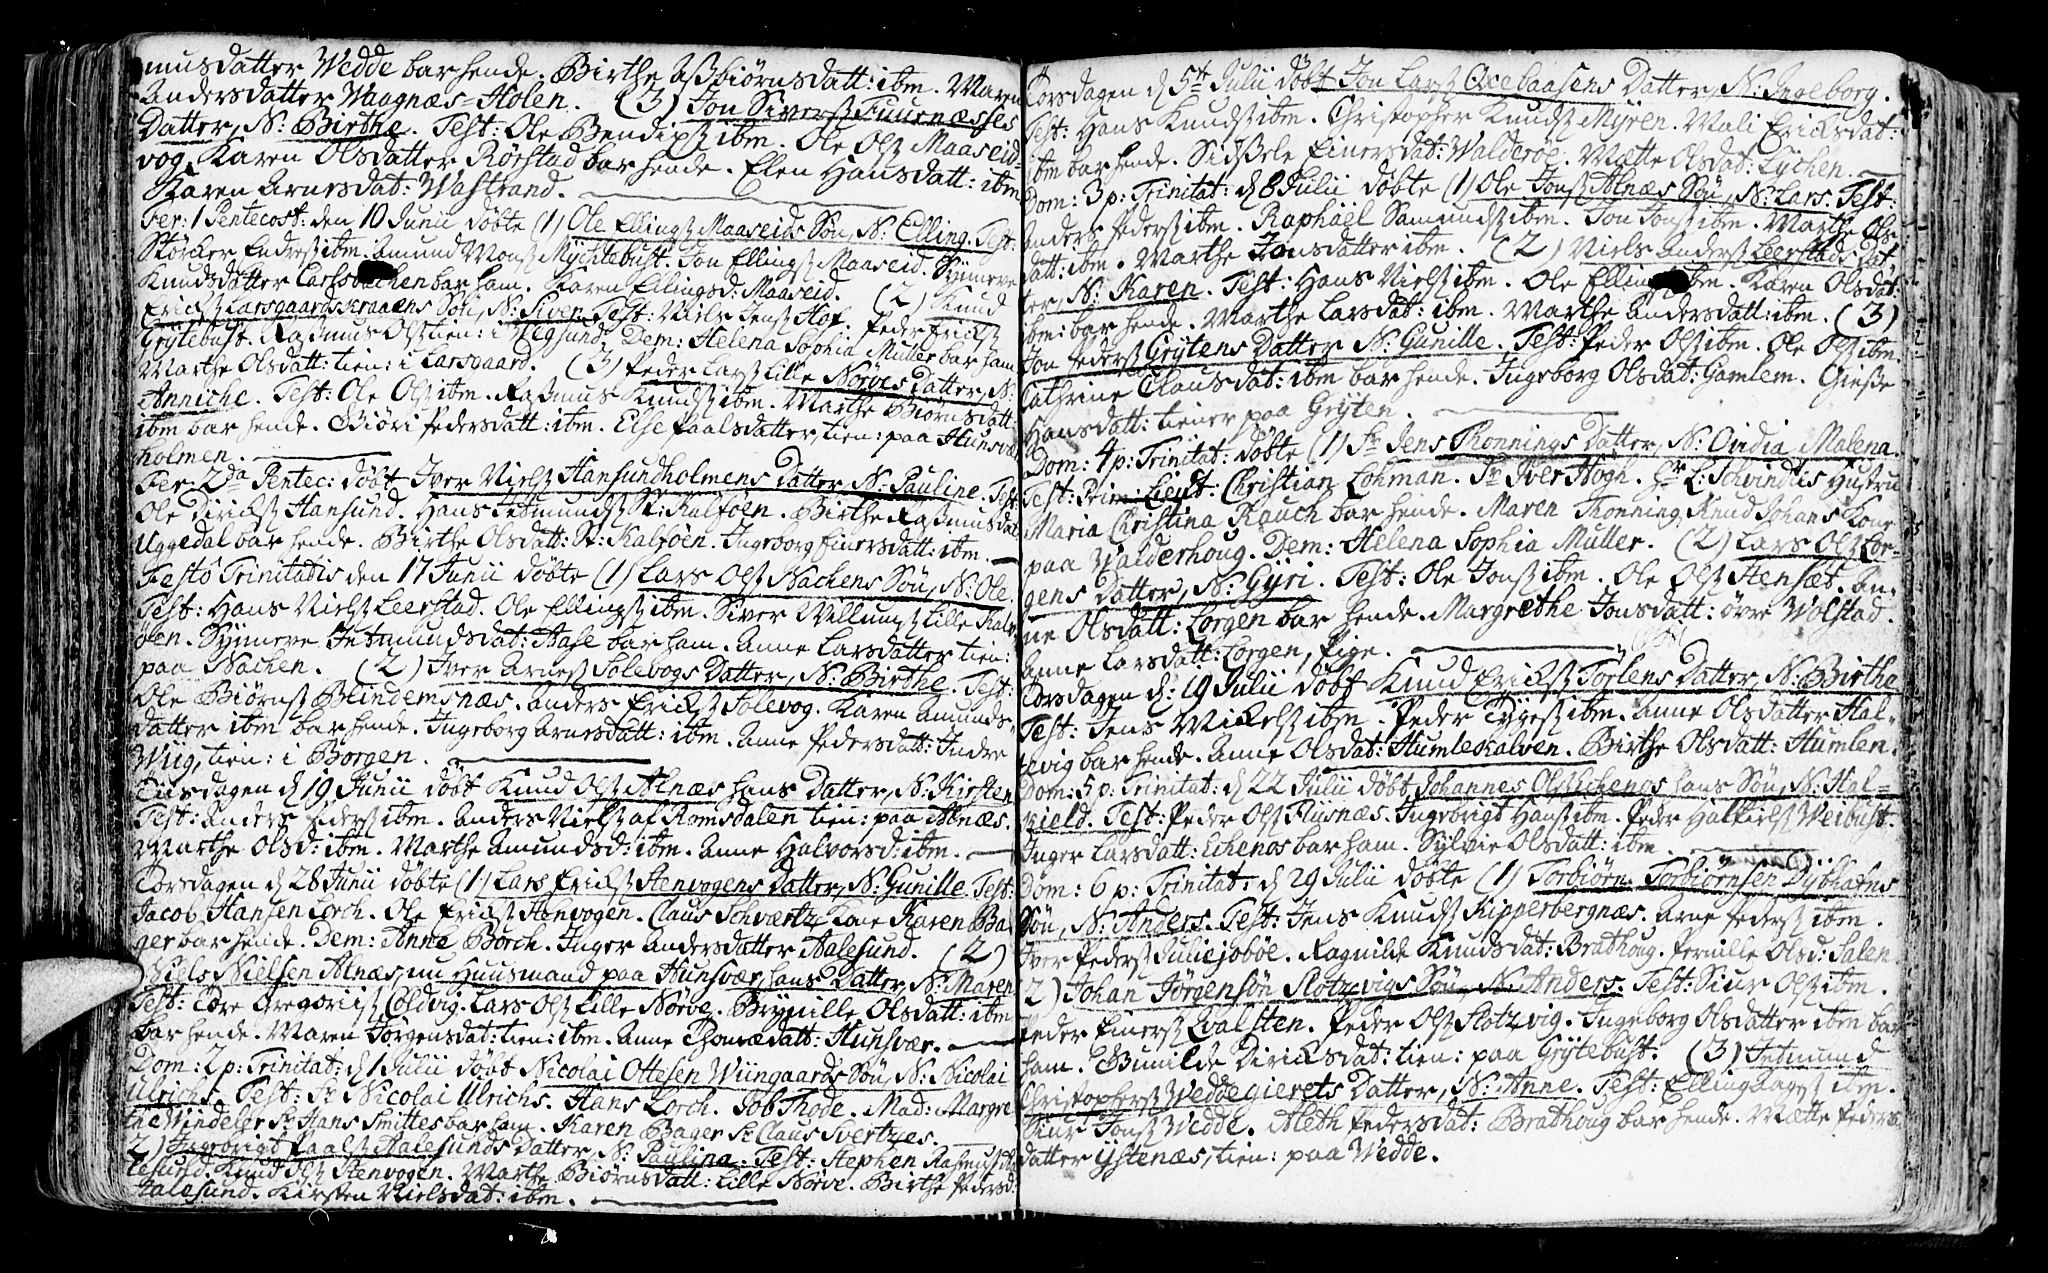 musdatter Wedde bar hende. Birthe Asbiørnsdatt: ibm. Maren
Andersdatter Waagnæs-Holen. (3) Jon Sivers Fuurnæsses
Datter, N: Birthe. Test: Ole Bendips ibm. Ole Ols Maaseid-
vog. Karen Olsdatter Rørstad bar hende. Elen Hansdatt: ibm
Karen Arnesdat: Wastrand.
Fer: 1 Pentecost: den 10 Junii døbte (1) Ole Ellings Maaseids Søn, N: Elling. Test:
Størcker Endres ibm. Amund Mons Mychlebust. Jon Ellings Maaseid. Synneve
Knudsdatter Larhsbachen bar ham. Karen Ellingsd: Maaseid. (2) Knud
Ericks Larsgaardskraaens Søn, N: Siven. Test: Niels Jens Hof. Peder Ericks
Grytebust. Rasmus Ols tien: i Wegsund. Dem: Helena Sophia Muller bar ham
Marthe Olsdatt: tien: i Larsgaard. (3) Peder Lars Lille Nørves Datter, N:
Anniche. Test: Ole Ols ibm. Rasmus Knuds ibm. Marthe Biørnsdatt:
ibm bar hende. Biøri Pedersdatt: ibm. Else Paalsdatter, tien: paa Hunsvæ
holmen.
Fer: 2da Pentec: døbt Iver Niels Hansundholmens Datter, N: Pauline. Test:
Ole Diricks Hansund. Hans Jetmunds St: Kalføen. Birthe Rasmusdat
Uggedal bar hende. Birthe Olsdatt: St: Kalføen. Ingeborg Einersdatt: ibm.
Festo Trinitatis den 17 Junii døbte (1) Lars Ols Nachens Søn, N: Ole.
Test: Hans Niels Leerstad. Ole Ellings ibm. Siver Willums Lille Kalv-
øen. Synneve Jetmundsdat: Aase bar ham. Anne Larsdatter tien:
paa Nachen. (2) Iver Arnes Solevogs Datter, N: Birthe. Test:
Ole Biørns Blindemsnæs. Anders Ericks Solevog. Karen Amunds-
datter ibm bar hende. Ingeborg Arnesdatt: ibm. Anne Pedersdatt: Indre
Wiig, tien: i Borgen.
Tiisdagen d 19 Junii døbt Knud Ols Alnæs hans Datter, N: Kirsten
Test: Anders Peders ibm. Anders Niels af Romsdalen tien: paa Alnæs.
Marthe Olsd: ibm. Marthe Amundsd: ibm. Anne Halvorsd: ibm.
Torsdagen d 28 Junii døbte (1) Lars Ericks Stenvogens Datter, N: Gunille. Test:
Jacob Hansen Lorch. Ole Ericks Stenvogen. Claus Schværtz Kone Karen Ba-
ger bar hende. Dem: Anne Borch. Inger Andersdatter Aalesund. (2)
Niels Nielsen Alnæs, nu Huusmand paa Hunsvær, hans Datter, N: Maren
Test: Tore Gregorii Coldvig. Lars Ols Lille Nørve. Brynille Olsdatt: ibm
bar hende. Maren Jørgensdat: tien: ibm. Anne Thomædatt: Hunsvær.
Dom: 2 p: Trinitat: d 1 Julii døbt Nicolai Ottesen Wiingaards Søn, N: Nicolai
Ulrichs. Test: Sr Nicolai Ulrichs. Hans Lorch. Job Thode. Mad: Margre
the Windeler Sr Hans Smittes bar ham. Karen Bager Sr Claus Svertzes.
2) Ingebrigt Paals Aalesunds Datter, N: Paulina. Test: Stephen Rasmus Aa-
lesund. Knud Ols Stenvogen. Marthe Biørnsdatt: Lille Nørve. Birthe Pedersd:
Aalesund. Kirsten Nielsdat: ibm.
Torsdagen d 5te Julii døbt Jon Lars Oxebaasens Datter, N: Ingeborg.
Test: Hans Knuds ibm. Christopher Knuds Myren. Mali Ericksdat:
ibm bar hende. Sidsele Einersdat: Walderøe. Mætte Olsdat: Lychen.
Dom: 3 p: Trinitat: d 8 Julii døbte (1) Ole Jons Alnæs Søn, N: Lars. Test:
Anders Peders ibm. Raphael Samunds ibm. Jon Jons ibm. Marthe Ols-
datt: ibm. Marthe Jonsdatter ibm. (2) Niels Anders Leerstads Dat
ter, N: Karen. Test: Hans Niels ibm. Ole Ellings ibm. Karen Olsdat:
ibm: bar hende. Marthe Larsdat: ibm. Marthe Andersdatt: ibm. (3)
Jon Peders Grytens Datter N: Gunille. Test: Peder Ols ibm. Ole Ols ibm
Cathrine Clausdat: ibm bar hende. Ingeborg Olsdat: Gamlem. Giese
Hansdatt: tiener paa Gryten.
Dom: 4 p: Trinitat: døbte (1) Sr Jens Thonnings Datter, N: Ovidia Malena.
Test: Prim: Lieut: Christian Lohman. Sr Iver Høgh. Hr L: Schvindts Hustru
Maria Christina Rauch bar hende. Maren Thonning, Knud Johans Kone
paa Walderhoug. Dem: Helena Sophia Muller. (2) Lars Ols Lor-
gens Datter, N: Gyri. Test: Ole Jons ibm. Ole Ols Stensæt. An-
ne Olsdatt: Lorgen bar hende. Margrethe Jonsdatt: øvre Wolstad.
Anne Larsdatt: Lorgen, Pige.
Torsdagen d: 19 Julii døbt Knud Ericks Torlens Datter, N: Birthe
Test: Jens Mickels ibm. Peder Tyges ibm. Anne Olsdatter Hal-
levig bar hende. Anne Olsdat: Humlekalven. Birthe Olsdatt: Humlen.
Dom: 5 p: Trinitat: d 22 Julii døbt Johannes Ols Echenos hans Søn, N: Hal-
kield. Test: Peder Ols Fliisnæs. Ingebrigt Hans ibm. Peder Halkiels Weibust.
Inger Larsdatt: Echenos bar ham. Sylvie Olsdatt: ibm.
Dom: 6 p: Trinitat: d 29 Julii døbte (1) Torbiørn Torbiørnsen Dybhafns
Søn, N: Anders. Test: Jens Knuds Kipperbergnæs. Arne Peders ibm.
Iver Peders Juliejobøe. Ragnilde Knudsdat: Brathoug. Pernille Olsd: Salen.
2) Johan Jørgensøn Slotzvigs Søn, N: Anders. Test: Siur Ols ibm.
Peder Einers Qvalsten. Peder Ols Slotzvig. Ingeborg Olsdatter ibm bar
ham. Gunilde Diricksdat: tien: paa Grytebust. (3) Jetmund
Christophers Weddegierets Datter, N: Anne. Test: Elling Lages ibm.
Siur Jons Wedde. Aleth Pedersdat: Brathoug bar hende. Mætte Peders-
datter Ystenæs, tien: paa Wedde.